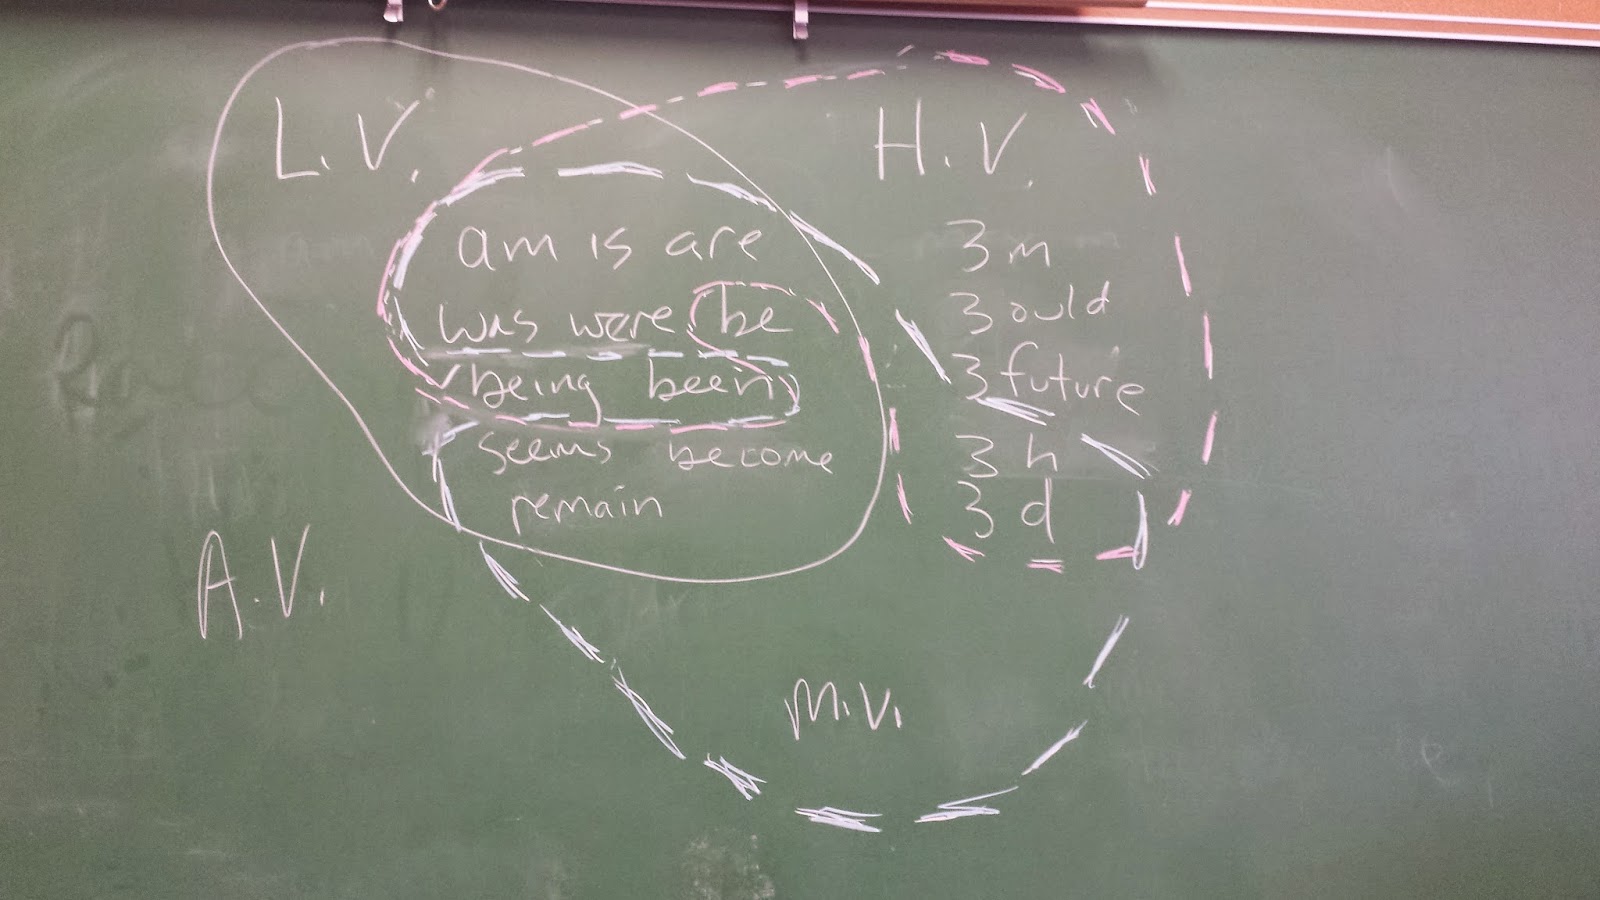 L.V.
H.V.
am is are
was were be
being been
seems become
remain
3 m
3 ould
3 future
3 h
3 d
A.V.
M.V.